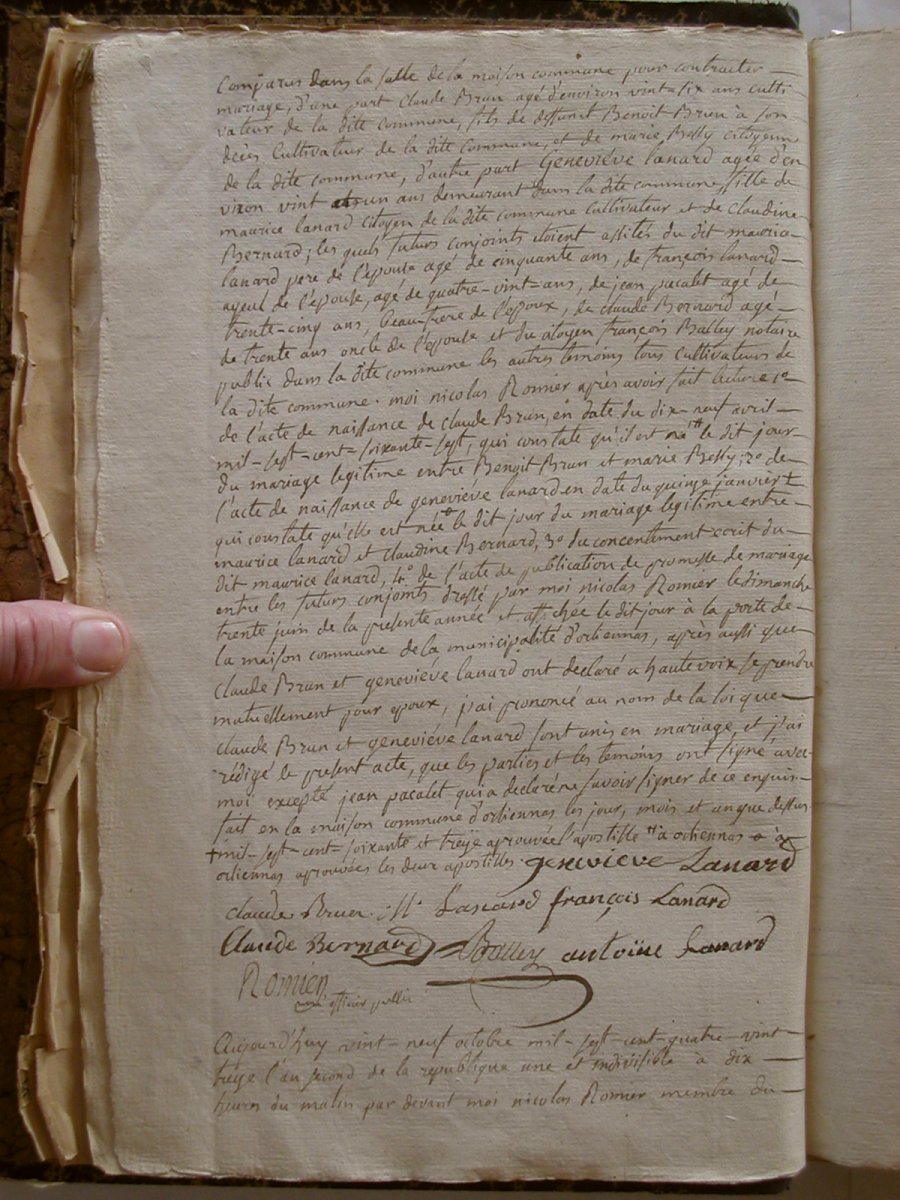 comparus dans la salle de la maison commune pour contracter
mariage, d'une part Claude Brun agé d'environ vint-six ans culti
vateur de la dite commune, fils de deffunt Benoit Brun à son
décès Cultivateur de la dite commune, et de marie Bessy citoyenne
de la dite commune, d'autre part Geneviéve lanard agée d'en
viron vint un ans demeurant dans la dite commune, fille de
maurice lanard Citoyen de la dite commune Cultivateur et de Claudine
Bernard; les quels futurs conjoints étoient assités du dit maurice
lanard pere de l'epouse agé de cinquante ans, de françois lanard
ayeul de l'épouse, agé de quatre-vint-ans, de jean pacalet agé de
trente-cinq ans, beau-frere de l'époux, de claude Bernard agé
de trente ans oncle de l'epouse et du citoyen françois Balley notaire
public dans la dite commune les autres temoins tous Cultivateurs de
la dite commune. moi nicolas Romier après avoir fait lecture 1º
de l'acte de naissance de claude Brun, en date du dix-neuf avril
mil-sept-cent-soixante-sept, qui constate qu'il est né le dit jour
du mariage legitime entre Benoit Brun et marie Bessy; 2º de
l'acte de naissance de geneviéve lanard en date du quinze janvier +
qui constate qu'elle est née le dit jour du mariage legitime entre
maurice lanard et Claudine Bernard, 3º du concentement ecrit du
dit maurice lanard, 4º de l'acte de publication de promesse de mariage
entre les futurs conjoints dressé par moi nicolas Romier le dimanche
trente juin de la présente année et affichée le dit jour à la porte de
la maison commune de la municipalité d'orliennas, après aussi que
Claude Brun et geneviéve lanard ont declaré a haute voix se prendre
mutuellement pour epoux, j'ai prononcé au nom de la loi que
claude Brun et geneviéve lanard sont unis en mariage, et j'ai
rédigé le present acte, que les parties et les temoins ont signé avec
moi excepté jean pacalet qui a declaré ne savoir signer de ce enquis
fait en la maison commune d'orliennas les jour, mois et an que dessus
+ mil-sept-cent-soixante et treize aprouvée l'apostille à orliennas
orliennas aprouvées les deux apostilles geneviéve Lanard
claude Brun françois Lanard
Claude Bernard Balley antoine Lanard
Romier officier public
Aujourd'huy vint-neuf octobre mil-sept-cent-quatre-vint
treize l'an second de la republique une et indivisible à dix
heures du matin par devant moi nicolas Romier membre du